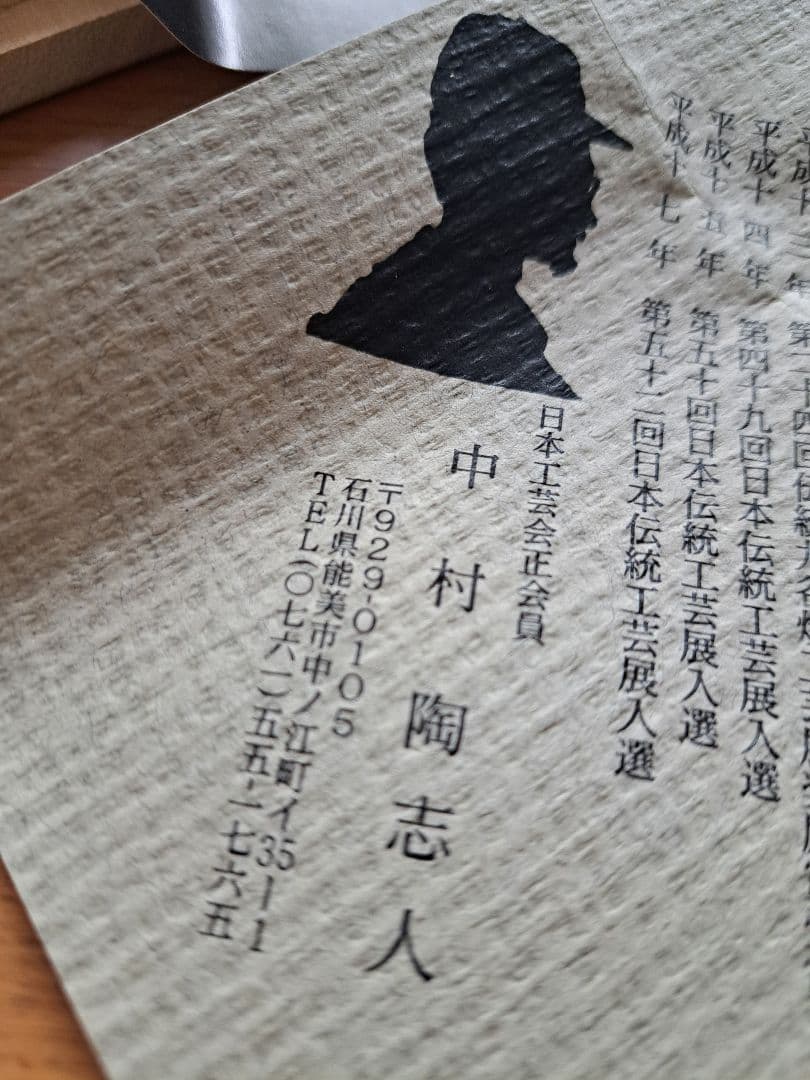 平成十三年 第二十四回伝統九谷焼工
平成十四年 第四十九回日本伝統工芸展入選
平成十五年 第五十回日本伝統工芸展入選
平成十七年 第五十二回日本伝統工芸展入選
日本工芸会正会員
中村陶志人
〒929-0105
石川県能美市中ノ江町イ35-1
TEL(〇七六一)五五-一七六五